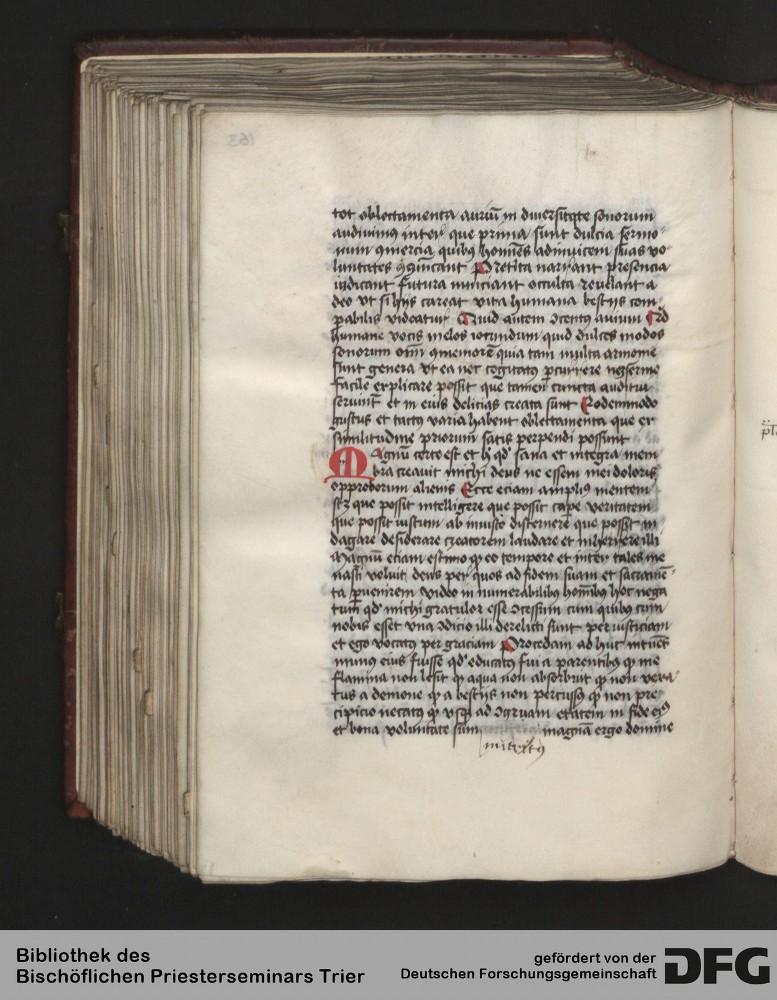 163
tot oblectamenta auriū in diuersitate sonorum
audiuimus inter que prima sunt dulcia sermo-
num ꝯmercia quibꝰ homēs adinuicem suas vo
luntates ꝯīcant Pretita narrant presencia
indicant futura nunciant occulta reuelant a
deo vt si hijs careat vita humana bestijs com
ꝑabilis videatur Quid autem ꝯcentꝰ auium
humane vocis melos iocundum quid dulces modos
sonorum oīm ꝯmemorē quia tam multa armonie
sunt genera vt ea nec cogitatꝰ ꝑcurrere neqꝫ sermo
facile explicare possit que tamen cuncta auditui
seruiunt et in eius delicias creata sunt Eodemmodo
gustus et tactꝰ varia habent oblectamenta que ex
similitudine priorum satis perpendi possunt
Magnū certe est et h qd' sana et integra mem
bra creauit michi deus ne essem mei doloris
opproborium alienis Ecce eciam amplius mentem
que possit intelligere que possit capꝰe veritatem
que possit iustum ab iniusto discernere que possit in
dagare desiderare creatorem laudare et inherrere illi
Magnū etiam estimo ꝙ eo tempore et inter tales me
nasci voluit deus per quos ad fidem suam et sacramē-
ta ꝑuenirem Video in numerabilibꝰ homībꝰ hoc nega
tum qd' michi gratulor esse ꝯcessum cum quibꝰ cum
nobis esset vna ꝯdicio illi derelicti sunt per iusticiam
et ego vocatꝰ per graciam Procedam ad huc
munus eius fuisse qd' educatꝰ fui a parentibꝰ ꝙ me
flamma non lesit ꝙ aqua non absorbuit ꝙ non vexa-
tus a demone ꝙ a bestijs non percussꝰ ꝙ non pre
cipicio necatꝰ ꝙ vsqꝫ ad ꝯgruam etatem in fide eiꝰ
et bona voluntate sum magnā ergo domine
Bibliothek des
Bischöflichen Priesterseminars Trier
gefördert von der
Deutschen Forschungsgemeinschaft
DFG